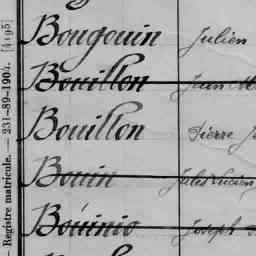 Bougouin Julien
Bouillon Jean M
Bouillon Pierre
Bouin Jules Lucien
Bouinio Joseph
— Registre matricule. — 231-89-1904. [4195]